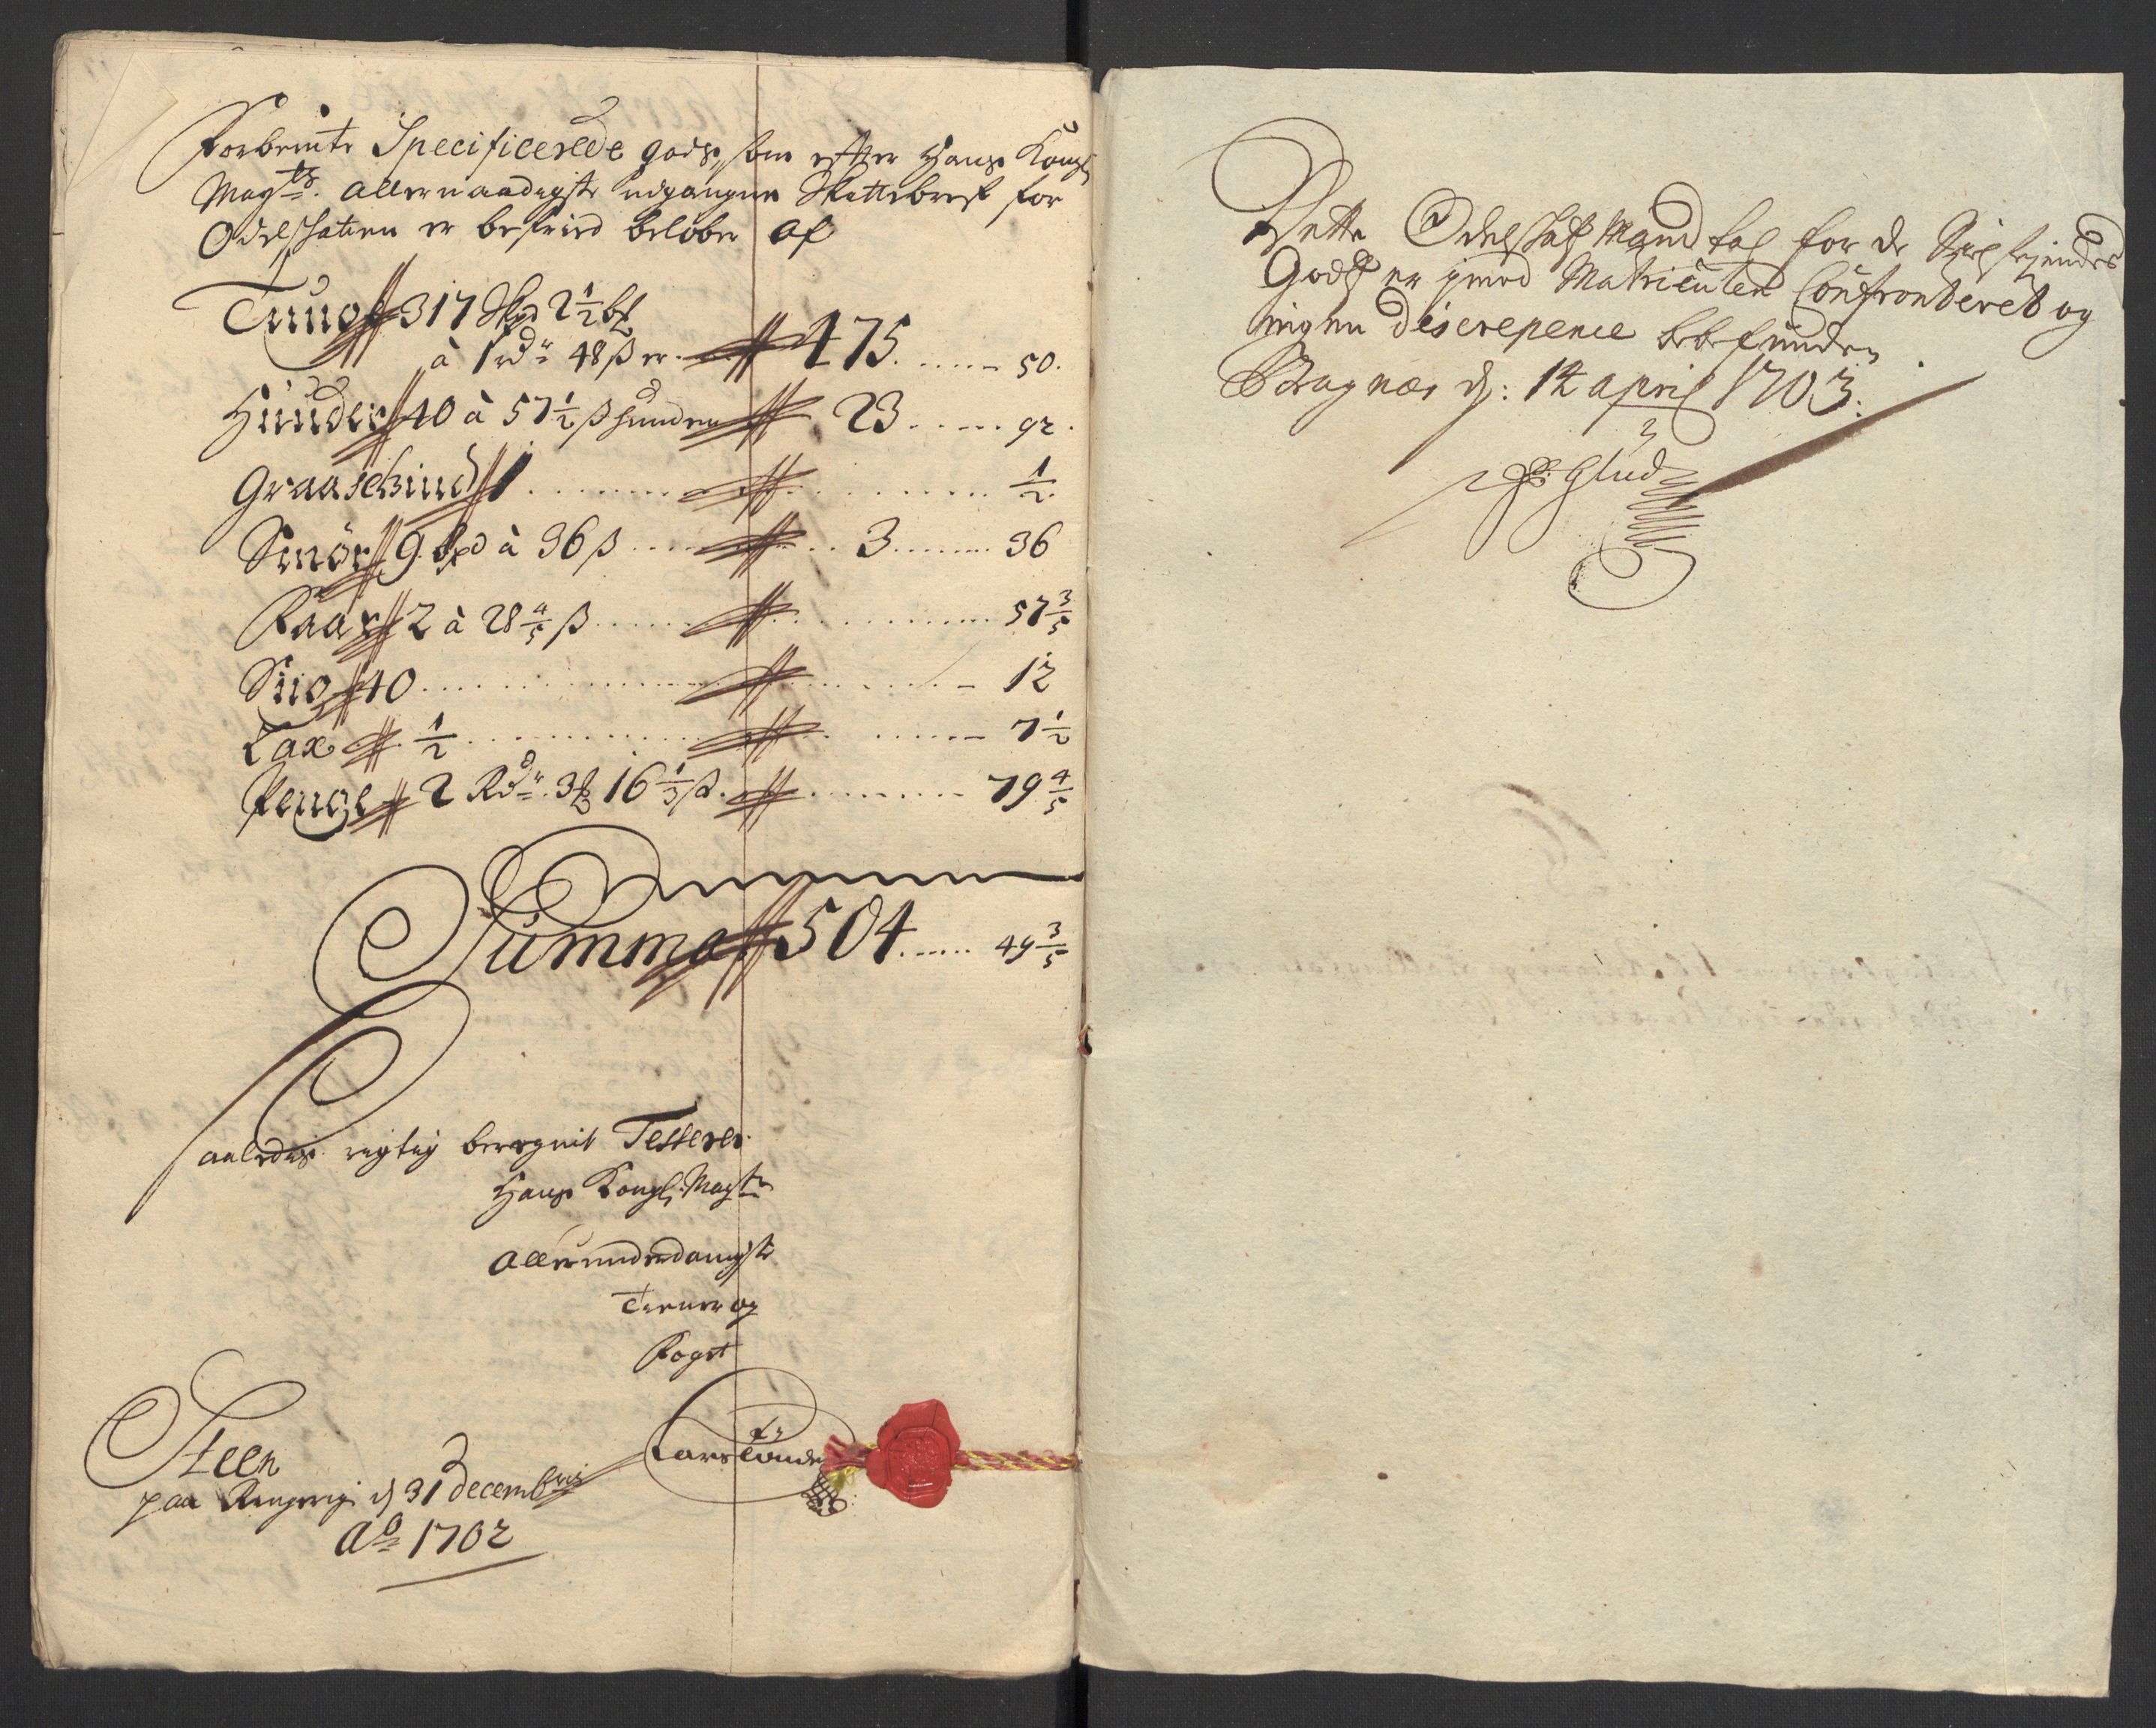 Forbemte Specificerede gods, som efter Hans Kongl
Mayts. Allernaadigste udgangne Skattebref for
Odelskatten er befried beløber Af
Tunge 317 Skpd 2½ bl
à 1 rdr 48 ß er 475 50.
Huuder 40 à 57½ ß huuden 23 92.
Graaschind 1 ½
Smör 9 bpd à 36 ß 3 36
Faar 2 à 28 4/5 ß 57 3/5
Smo 40 12
Lax ½ 7½
Penge 2 Rdr. 3 16 1/3 ß 79 4/5
Summa 504 49 3/5
Saaledes rigtig beregnit Testerer
Hans Kongl. Mayts
Allerunderdanigste
Tienner og
Fogit
Steen
paa Ringerige d 31 Decembris
Ao 1702
Lars Tønder
Dette Odelskatt Mandtal for de Siel Ejendes
Gods er imod Matriculen Confronderet og
ingen discrepence bebefunden
Bragnæs d: 14 april 1703.
Glud